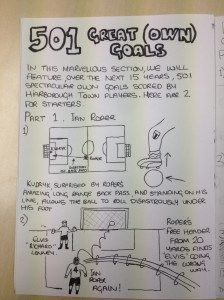 501 GREAT (OWN)
GOALS
IN THIS MARVELLOUS SECTION, WE WILL
FEATURE OVER THE NEXT 15 YEARS, 501
SPECTACULAR OWN GOALS SCORED BY
HARBOROUGH TOWN PLAYERS. HERE ARE 2
FOR STARTERS.
PART 1. IAN ROPER
1)
SURPRISED BY ROPERS
AMAZING LONG RANGE BACK PASS AND STANDING ON HIS
LINE, ALLOWS THE BALL TO ROLL DISASTROUSLY UNDER
HIS FOOT
2)
'ELVIS'
IAN
ROPER
AGAIN!
ROPERS
FREE HEADER
FROM 20
YARDS FINDS
'ELVIS' GOING
THE WRONG
WAY.